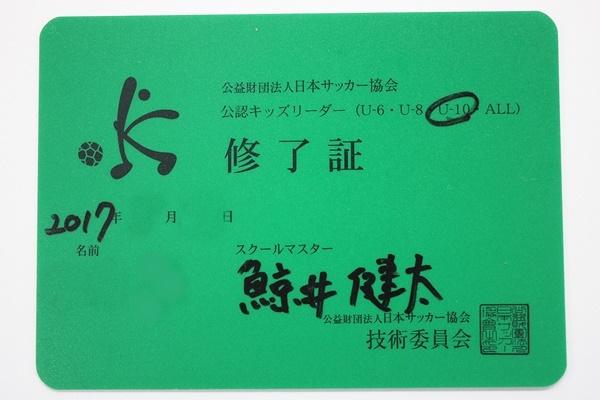 公益財団法人日本サッカー協会
公認キッズリーダー（U-6・U-8・U-10・ALL）
修了証
2017年 月 日
名前
スクールマスター
鯨井健太
公益財団法人日本サッカー協会
技術委員会